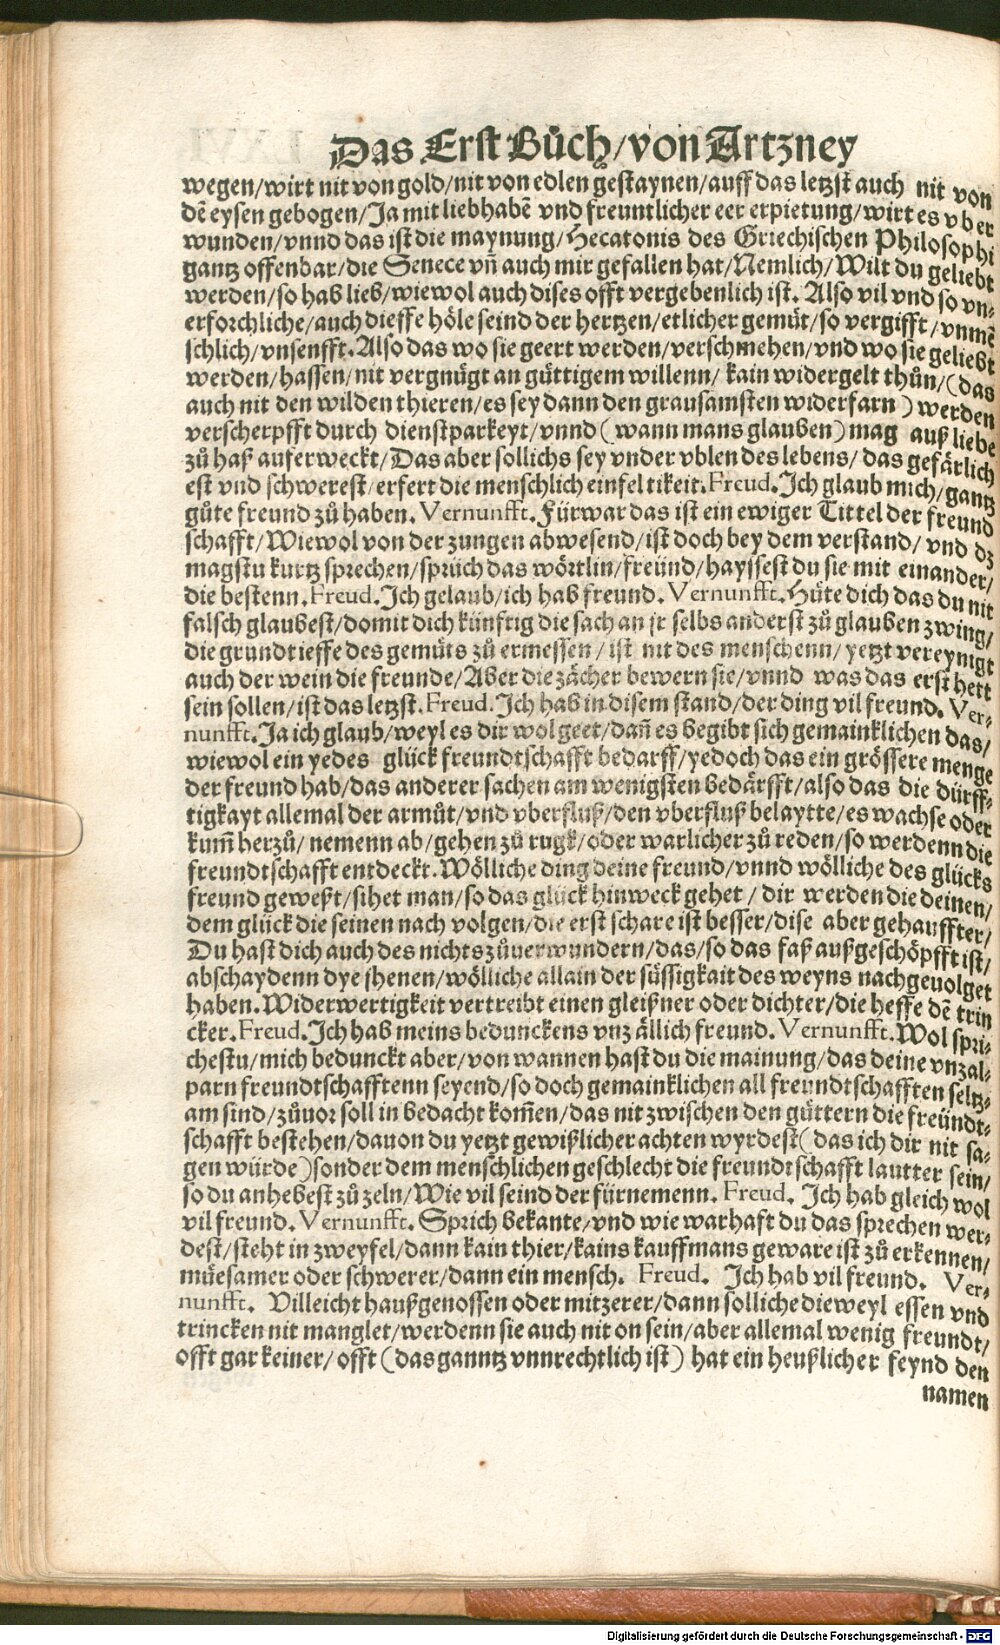 Das Erst Bůch/von Artzney
wegen/wirt nit von gold/nit von edlen gestaynen/auff das letzst auch nit von
dē eysen gebogen/Ja mit liebhabē vnd freuntlicher eer erpietung/wirt es vber
wunden/vnnd das ist die maynung/Hecatonis des Griechischen Philosophi
gantz offenbar/die Senece vn̄ auch mir gefallen hat/Nemlich/Wilt du geliebt
werden/so hab lieb/wiewol auch dises offt vergebenlich ist. Also vil vnd so vn⸗
erforchliche/auch dieffe höle seind der hertzen/etlicher gemüt/so vergifft/vnmē
schlich/vnsenfft. Also das wo sie geert werden/verschmehen/vnd wo sie geliebt
werden/hassen/nit vergnügt an güttigem willenn/kain widergelt thůn/(das
auch nit den wilden thieren/es sey dann den grausamsten widerfarn) werden
verscherpfft durch dienstparkeyt/vnnd (wann mans glauben) mag auß liebe
zů haß auferweckt/Das aber sollichs sey vnder vblen des lebens/das gefärlich
est vnd schwerest/erfert die menschlich einfeltikeit. Freud. Ich glaub mich/gantz
gůte freund zů haben. Vernunfft. Fürwar das ist ein ewiger Tittel der freund
schafft/Wiewol von der zungen abwesend/ist doch bey dem verstand/vnd dz
magstu kurtz sprechen/sprüch das wörtlin/freünd/hayssest du sie mit einander/
die bestenn. Freud. Ich gelaub/ich hab freund. Vernunfft. Hüte dich das du nit
falsch glaubest/domit dich künftig die sach an jr selbs anderst zů glauben zwing/
die grundtieffe des gemüts zů ermessen/ist nit des menschenn/yetzt vereynigt
auch der wein die freunde/Aber die zächer bewern sie/vnnd was das erst hett
sein sollen/ist das letzst. Freud. Ich hab in disem stand/der ding vil freund. Ver⸗
nunfft. Ja ich glaub/weyl es dir wol geet/dan̄ es begibt sich gemainklichen das/
wiewol ein yedes glück freundtschafft bedarff/yedoch das ein grössere menge
der freund hab/das anderer sachen am wenigsten bedärfft/also das die dürff⸗
tigkayt allemal der armůt/vnd vberfluß/den vberfluß belaytte/es wachse oder
kum̄ herzů/nemenn ab/gehen zů rugk/oder warlicher zů reden/so werdenn die
freundtschafft entdeckt. Wölliche ding deine freund/vnnd wölliche des glücks
freund geweßt/sihet man/so das glück hinweck gehet/dir werden die deinen/
dem glück die seinen nach volgen/die erst schare ist besser/dise aber gehauffter/
Du hast dich auch des nichts zůuerwundern/das/so das faß außgeschöpfft ist/
abschaydenn dye jhenen/wölliche allain der süssigkait des weyns nachgeuolget
haben. Widerwertigkeit vertreibt einen gleißner oder dichter/die heffe dē trin
cker. Freud. Ich hab meins beduncken s vnzällich freund. Vernunfft. Wol spri⸗
chestu/mich bedunckt aber/von wannen hast du die mainung/das deine vnzal⸗
parn freundtschafftenn seyend/so doch gemainklichen all freundtschafften seltz⸗
am sind/zůuor soll in bedacht kom̄en/das nit zwischen den güttern die freündt⸗
schafft bestehen/dauon du yetzt gewißlicher achten wyrdest (das ich dir nit sa⸗
gen würde) sonder dem menschlichen geschlecht die freundtschafft lautter sein/
so du anhebest zů zeln/Wie vil seind der fürnemenn. Freud. Ich hab gleich wol
vil freund. Vernunfft. Sprich bekante/vnd wie warhaft du das sprechen wer⸗
dest/steht in zweyfel/dann kain thier/kains kauffmans geware ist zů erkennen/
müesamer oder schwerer/dann ein mensch. Freud. Ich hab vil freund. Ver⸗
nunfft. Villeicht haußgenossen oder mitzerer/dann solliche dieweyl essen vnd
trincken nit manglet/werdenn sie auch nit on sein/aber allemal wenig freundt/
offt gar keiner/offt (das ganntz vnnrechtlich ist) hat ein heußlicher feynd den
namen
Digitalisierung gefördert durch die Deutsche Forschungsgemeinschaft - DFG